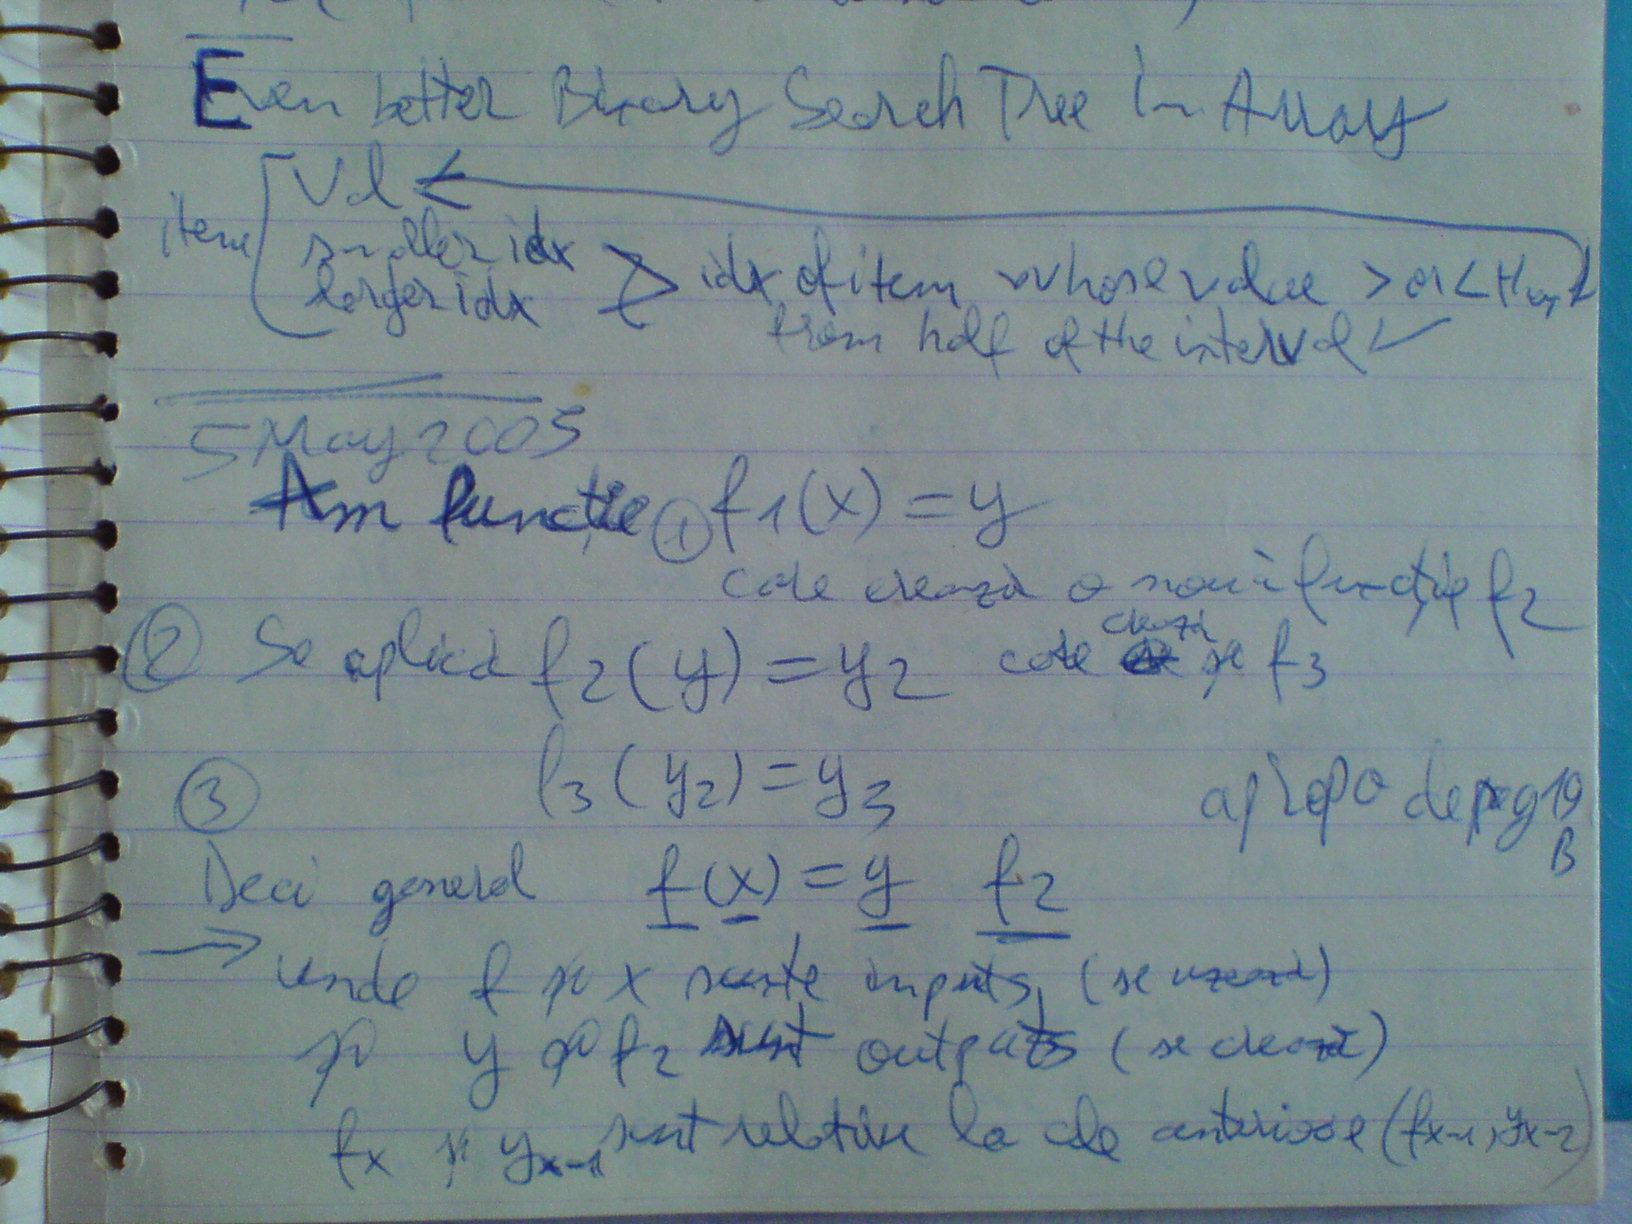 Even better Binary Search Tree in Array
item
Val
smaller idx
larger idx
idx of item whose value > or < than
from half of the interval
5 May 2005
Am funcție ① f1(x) = y
care crează o nouă funcție f2
② Se aplică f2(y) = y2 care crează pe f3
③ f3(y2) = y3
apropo de pag 19
B
Deci general f(x) = y f2
→ unde f și x sunt inputs (se uzează)
și y și f2 sunt outputs (se crează)
fx și yx-1 sunt relative la cele anterioare (fx-1, yx-2)